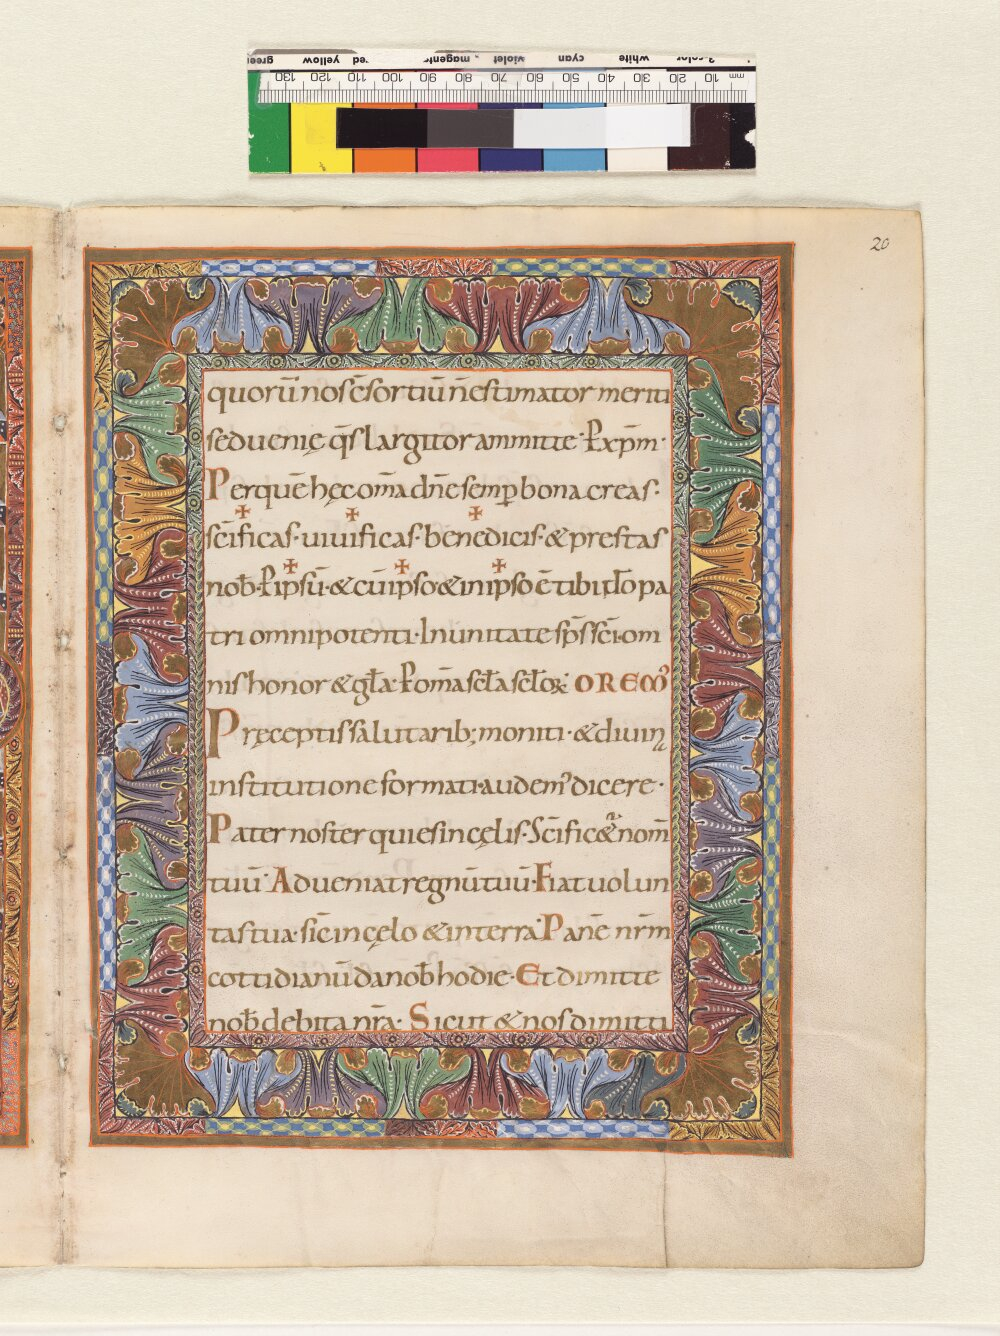 green yellow red magenta violet cyan white 3-color
130 120 110 100 90 80 70 60 50 40 30 20 10 mm
20
quorū nos c̄sortiū n̄ estimator meriti
sed uenię q̄s largitor ammitte· P xp̄m·
Per quē hęc om̄a dn̄e semp bona creas·
sc̄ificas· uiuificas· benedicis· & prestas
nob̄· P ipsū· & cū ipso· & in ipso ē tibi dō pa
tri omnipotenti· In unitate sp̄s sc̄i· om
nis honor & gła· P om̄a scła scłoꝝ· OREMꝰ
Pręceptis salutarib; moniti· & diuina
institutione formati· audemꝰ dicere·
Pater noster qui es in cęlis· Sc̄ificet̄ nom̄
tuū· Adueniat regnū tuū· Fiat uolun
tas tua· sic̄ in cęlo & in terra· Panē nr̄m
cottidianū da nob̄ hodie· Et dimitte
nob̄ debita nr̄a· Sicut & nos dimitti